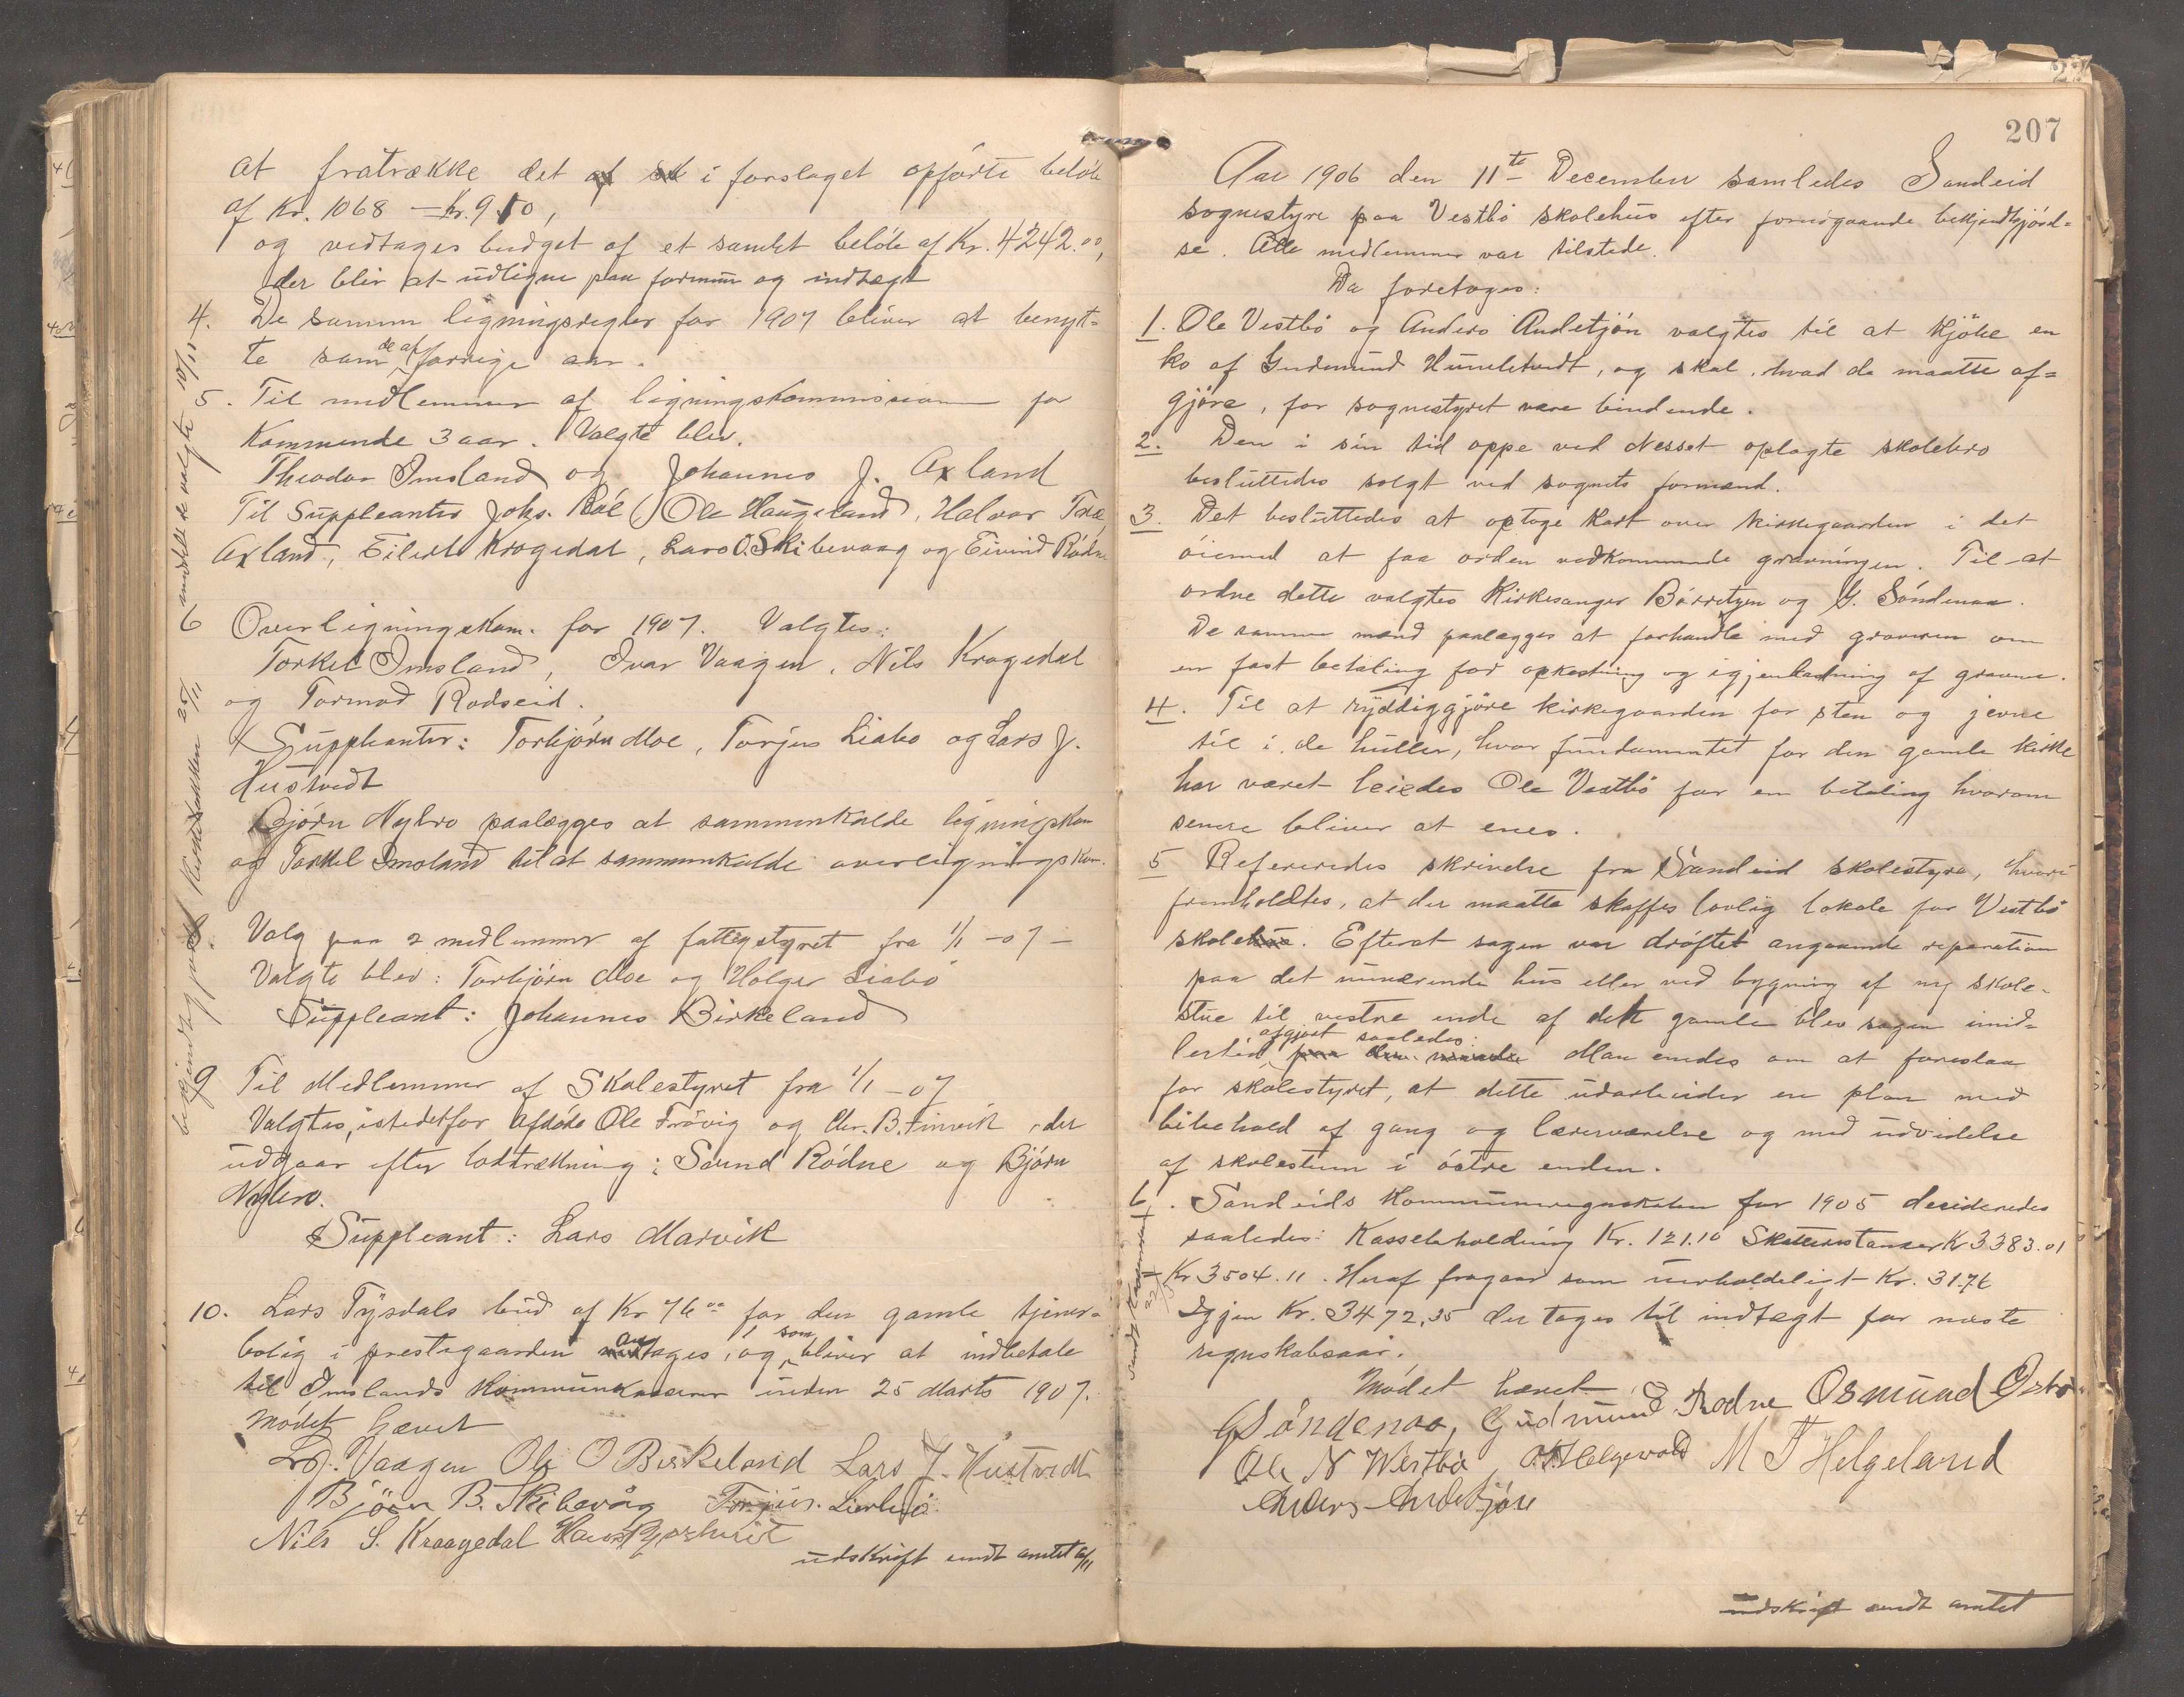 at fratrække det i forslaget opførte beløb
af Kr. 1068 – Kr. 950,
og vedtages budget af et samlet beløb af Kr. 4242.00,
der blir at udligne paa formue og indtægt
4. De samme ligningsregler for 1907 bliver at benyt-
te som de af forrige aar.
5. Til medlemmer af ligningskommissionen for
Kommende 3 aar. Valgte blev.
Theodor Imsland og Johannes J. Axland
Til Suppleanter Johs. Ole Haugeland, Halvor
Axland, Eilert Krogedal, Lars O. Skibevaag og Eivind Rødne
6 Overligningskom. for 1907. Valgtes:
Torkel Imsland, Ivar Vaagen, Nils Kragedal
og Tormod Rodseid.
Suppleanter: Torbjørn Moe, Torjus Liabø og Lars J.
Hustvedt
Bjørn Nybro paalægges at sammenkalde ligningskom
og Torkel Imsland til at sammenkalde overligningskom.
8. Valg paa 2 medlemmer af fattigstyret fra 1/1 – 07 –
Valgte blev: Torbjørn Moe og Holger Liabø
Suppleant: Johannes Birkeland
9 Til Medlemmer af Skolestyret fra 1/1 – 07
Valgtes, istedetfor afdøde Ole Frøvig og Chr. B. der
udgaar efter lodtrækning: Søund Rødne og Bjørn
Nybro.
Suppleant: Lars Marvik
10. Lars Tysdals bud af Kr 76 00 for den gamle tjener-
bolig i prestegaarden antages, og som bliver at indbetale
til Imslands Kommunekasserer inden 25 Marts 1907.
Mødet hævet
Vaagen Ole O Birkeland Lars J. Hustvedt
Bjørn B. Skibevåg Torjus Liabø
Nils S. Kraagedal
udskrift sendt amtet
207
Aar 1906 den 11te December samledes Sandeid
sognestyre paa Vestbø skolehus efter forudgaaende bekjendtgjørel-
se. Alle medlemmer var tilstede.
Da foretoges:
1. Ole Vestbø og Anders Andetjøn valgtes til at kjøbe en
ko af Gudmund Humletvedt, og skal, hvad de maatte af-
gjøre, for sognestyret være bindende.
2. Den i sin tid oppe ved Nesset oplagte skolebro
besluttedes solgt ved sognets formand.
3. Det besluttedes at optage kart over kirkegaarden i det
øiemed at faa orden vedkommende gravningen. Til at
ordne dette valgtes Kirkesanger Børretzen og G. Søndenaa.
De samme mænd paalægges at forhandle med graveren om
en fast betaling for opkastning og igjenkastning af gravene.
4. Til at ryddiggjøre kirkegaarden for sten og jevne
til i de huller, hvor fundamentet for den gamle kirke
har været leiedes Ole Vestbø for en betaling hvorom
senere bliver at enes.
5 Refereredes skrivelse fra Sandeid skolestyre, hvori
fremholdtes, at der maatte skaffes lovlig lokale for Vestbø
skole. Efterat sagen var drøftet angaaende reparation
paa det nuværende hus eller ved bygning af ny skole-
stue til vestre ende af det gamle blev sagen imid-
lertid afgjort saaledes: Man enedes om at foreslaa
for skolestyret, at dette udarbeider en plan med
bibehold af gang og lærerværelse og med udvidelse
af skolestuen i østre enden.
6. Sandeids Kommuneregnskaber for 1905 decideredes
saaledes: Kassebeholdning Kr. 121.10 Skatterestanser Kr 3383.01
Kr 3504.11. Heraf fragaar som uerholdeligt Kr. 31.76
Igjen Kr. 3472,35 der tages til indtægt for næste
regnskabsaar.
Mødet hævet
G Søndenaa, Gudmund Rodne Osmund Østbø
Ole N Westbø O. Helgevold M T Helgeland
Anders Andetjøn
udskrift sendt amtet